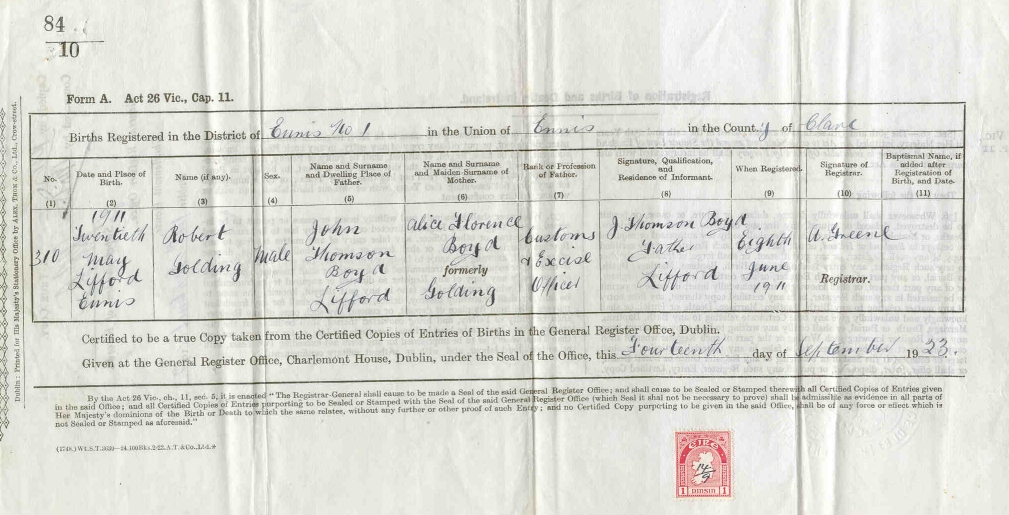 84
10
Form A. Act 26 Vic., Cap. 11.
Births Registered in the District of Ennis No 1 in the Union of Ennis in the County of Clare
No. Date and Place of Birth. Name (if any). Sex. Name and Surname and Dwelling Place of Father. Name and Surname and Maiden Surname of Mother. Rank or Profession of Father. Signature, Qualification, and Residence of Informant. When Registered. Signature of Registrar. Baptismal Name, if added after Registration of Birth, and Date.
(1) (2) (3) (4) (5) (6) (7) (8) (9) (10) (11)
310
1911
Twentieth
May
Lifford
Ennis
Robert
Golding
Male
John
Thomson
Boyd
Lifford
Alice Florence
Boyd
formerly
Golding
Customs
& Excise
Officer
J Thomson Boyd
Father
Lifford
Eighth
June
1911
A. Greene
Registrar.
Certified to be a true Copy taken from the Certified Copies of Entries of Births in the General Register Office, Dublin.
Given at the General Register Office, Charlemont House, Dublin, under the Seal of the Office, this Fourteenth day of September 1923.
By the Act 26 Vic., ch., 11, sec. 5, it is enacted "The Registrar-General shall cause to be made a Seal of the said General Register Office; and shall cause to be Sealed or Stamped therewith all Certified Copies of Entries given
in the said Office; and all Certified Copies of Entries purporting to be Sealed or Stamped with the Seal of the said General Register Office (which Seal it shall not be necessary to prove) shall be admissible as evidence in all parts of
Her Majesty's dominions of the Birth or Death to which the same relates, without any further or other proof of such Entry; and no Certified Copy purporting to be given in the said Office, shall be of any force or effect which is
not Sealed or Stamped as aforesaid."
Dublin: Printed for His Majesty's Stationery Office by Alex. Thom & Co., Ltd.,
ÉIRE
14/9
1 PINSIN 1